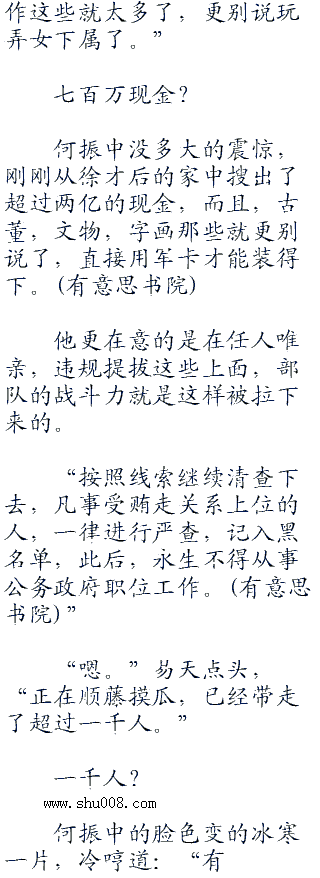 作这些就太多了，更别说玩
弄女下属了。”
七百万现金？
何振中没多大的震惊，
刚刚从徐才后的家中搜出了
超过两亿的现金，而且，古
董，文物，字画那些就更别
说了，直接用军卡才能装得
下。(有意思书院)
他更在意的是在任人唯
亲，违规提拔这些上面，部
队的战斗力就是这样被拉下
来的。
“按照线索继续清查下
去，凡事受贿走关系上位的
人，一律进行严查，记入黑
名单，此后，永生不得从事
公务政府职位工作。(有意思
书院)”
“嗯。”易天点头，
“正在顺藤摸瓜，已经带走
了超过一千人。”
一千人？
www.shu008.com
何振中的脸色变的冰寒
一片，冷哼道：“有